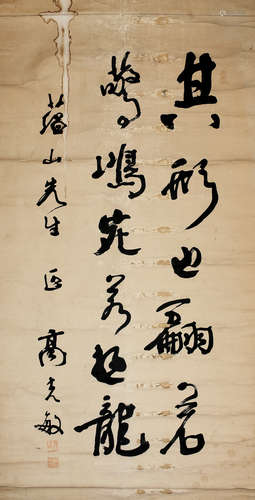 其形也翩若
驚鴻宛若游龍
蕴山先生正 高克敏